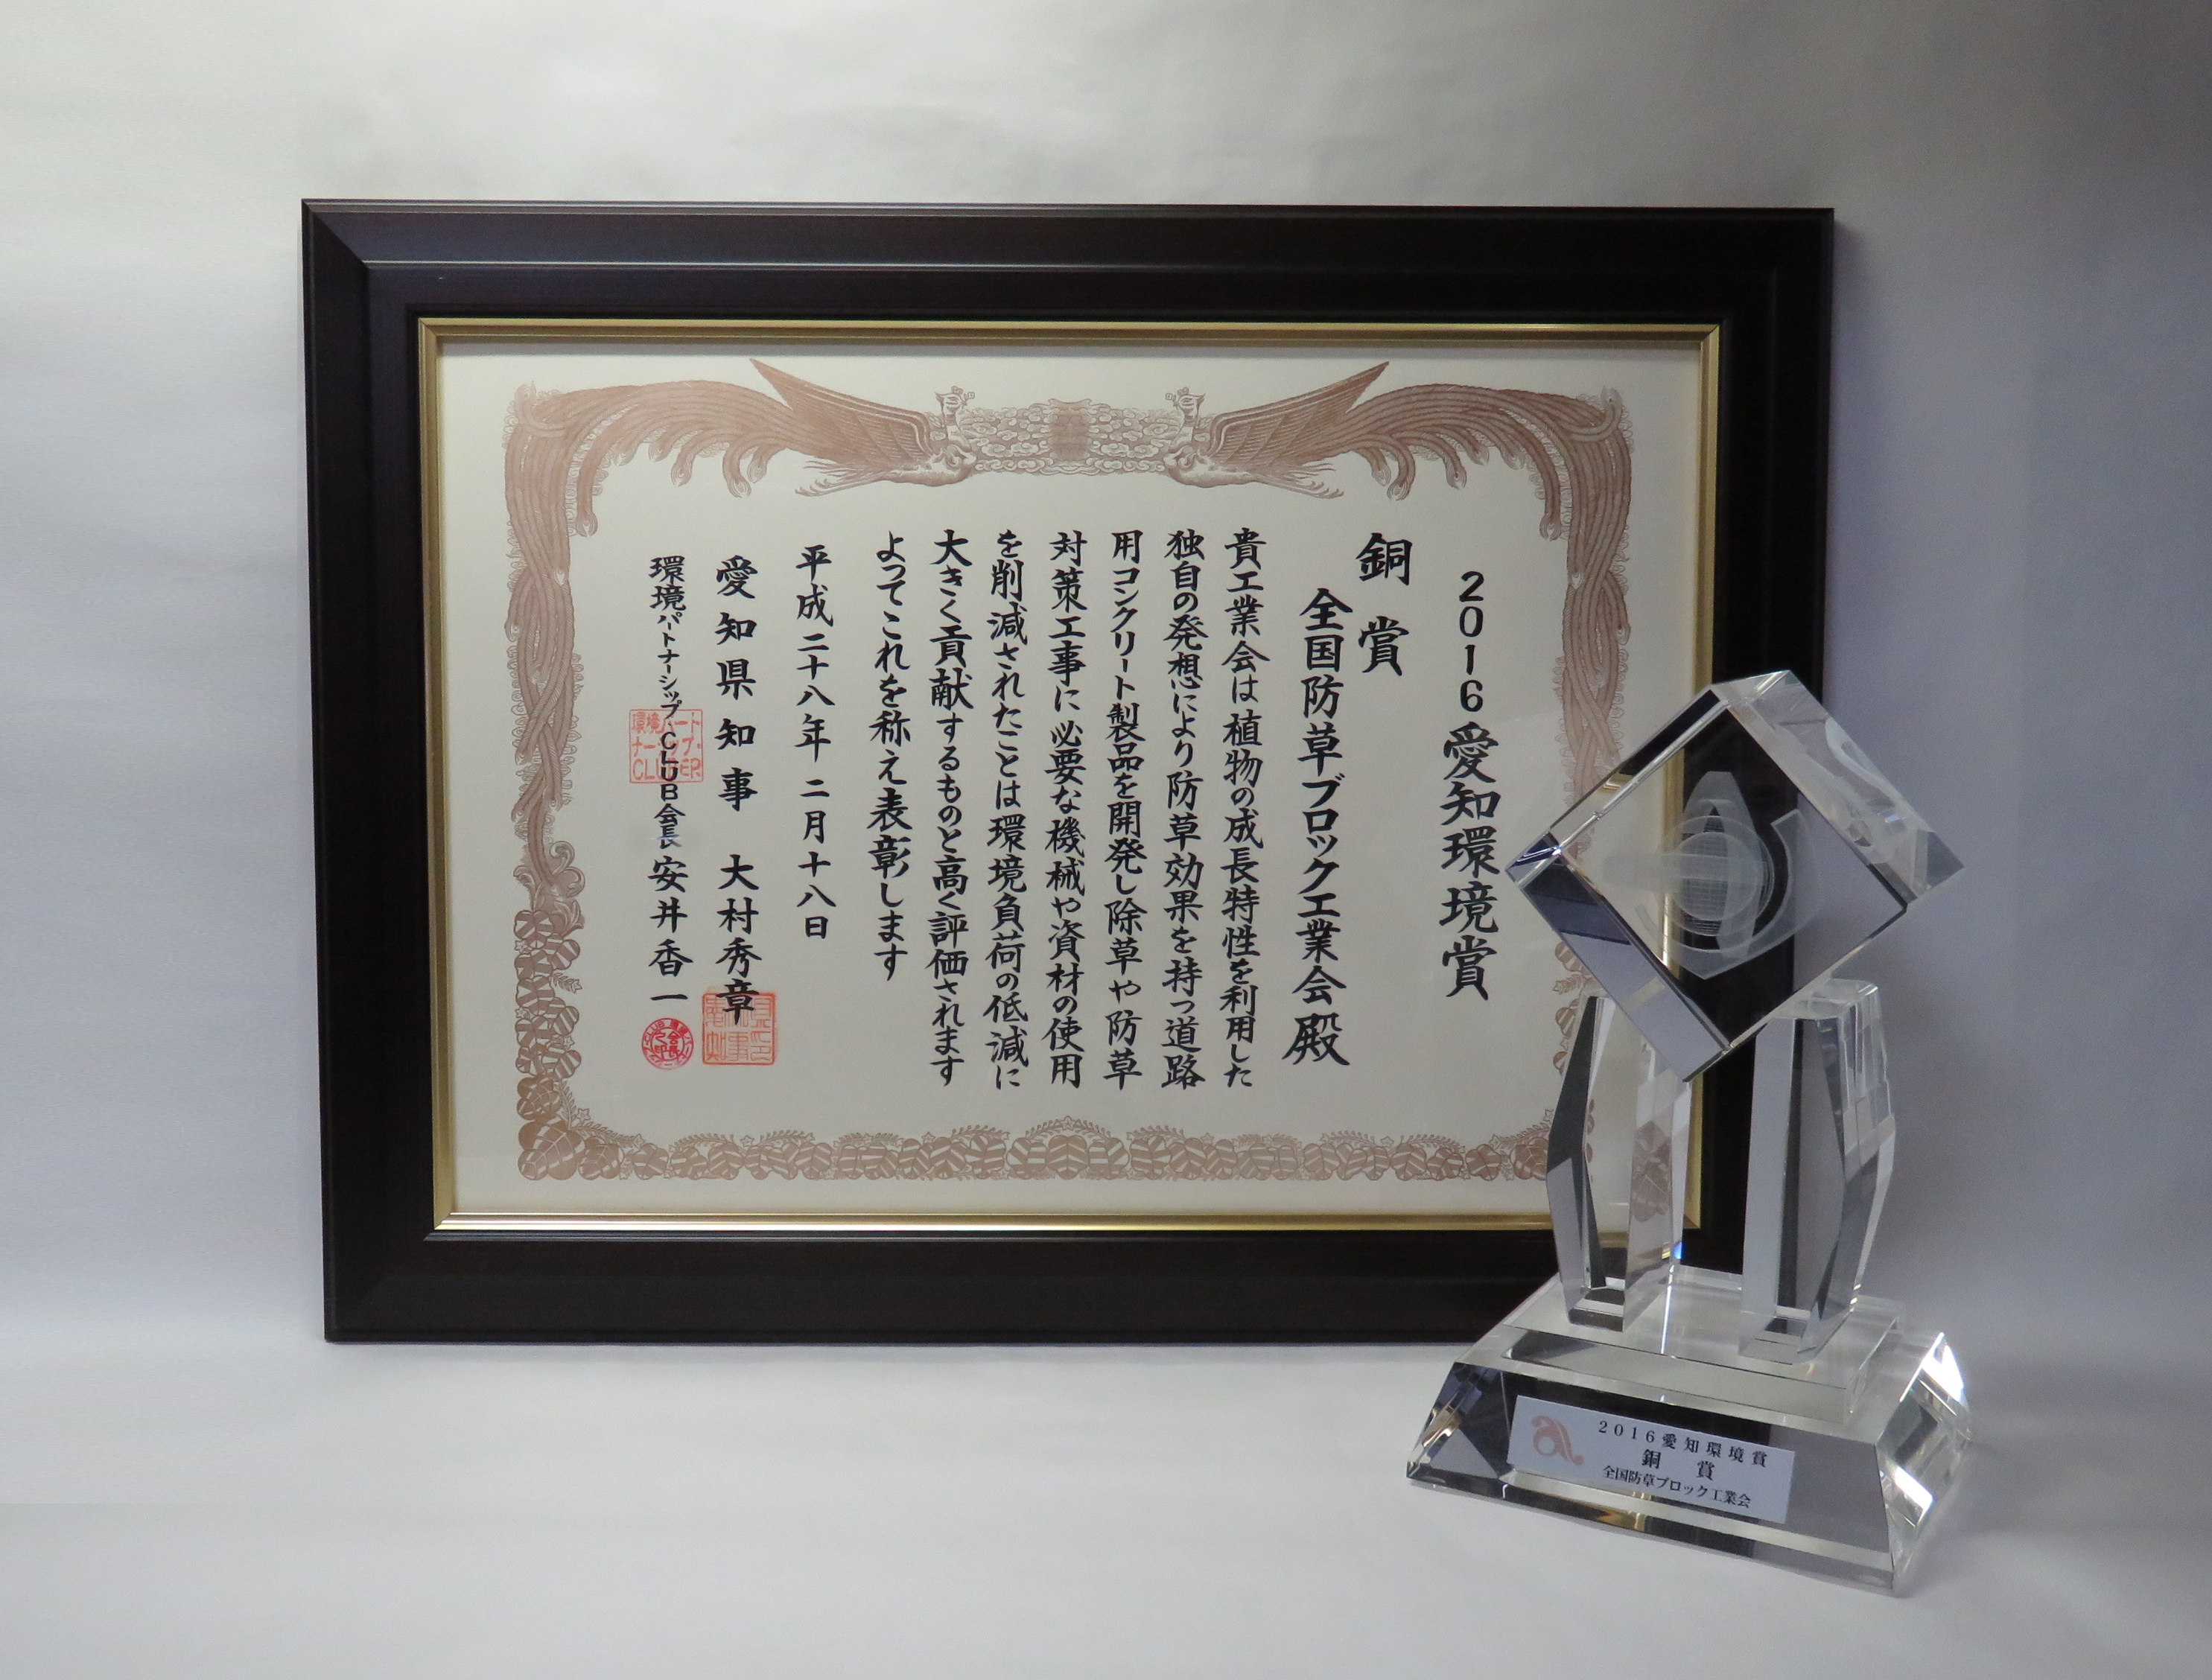 2016愛知環境賞
銅賞
全国防草ブロック工業会殿
貴工業会は植物の成長特性を利用した
独自の発想により防草効果を持つ道路
用コンクリート製品を開発し除草や防草
対策工事に必要な機械や資材の使用
を削減されたことは環境負荷の低減に
大きく貢献するものと高く評価されます
よってこれを称え表彰します
平成二十八年二月十八日
愛知県知事 大村秀章
環境パートナーシップ・CLUB会長 安井香一
2016愛知環境賞
銅賞
全国防草ブロック工業会